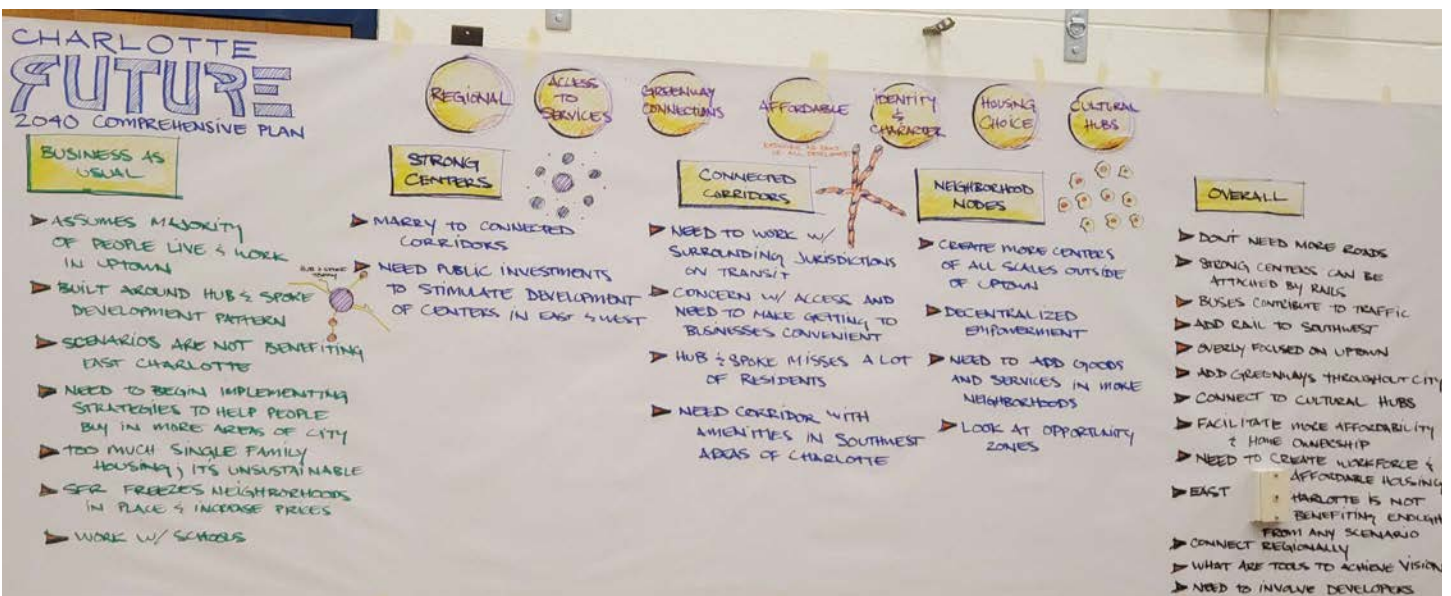 CHARLOTTE
FUTURE
2040 COMPREHENSIVE PLAN
REGIONAL
ACCESS
TO
SERVICES
GREENWAY
CONNECTIONS
AFFORDABLE
IDENTITY
&
CHARACTER
HOUSING
CHOICE
CULTURAL
HUBS
BUSINESS AS
USUAL
▶ ASSUMES MAJORITY
OF PEOPLE LIVE & WORK
IN UPTOWN
▶ BUILT AROUND HUB & SPOKE
DEVELOPMENT PATTERN
▶ SCENARIOS ARE NOT BENEFITING
EAST CHARLOTTE
▶ NEED TO BEGIN IMPLEMENTING
STRATEGIES TO HELP PEOPLE
BUY IN MORE AREAS OF CITY
▶ TOO MUCH SINGLE FAMILY
HOUSING; ITS UNSUSTAINABLE
▶ SFR FREEZES NEIGHBORHOODS
IN PLACE & INCREASE PRICES
▶ WORK W/ SCHOOLS
HUB & SPOKE
STRONG
CENTERS
▶ MARRY TO CONNECTED
CORRIDORS
▶ NEED PUBLIC INVESTMENTS
TO STIMULATE DEVELOPMENT
OF CENTERS IN EAST & WEST
CONNECTED
CORRIDORS
▶ NEED TO WORK W/
SURROUNDING JURISDICTIONS
ON TRANSIT
▶ CONCERN W/ ACCESS AND
NEED TO MAKE GETTING TO
BUSINESSES CONVENIENT
▶ HUB & SPOKE MISSES A LOT
OF RESIDENTS
▶ NEED CORRIDOR WITH
AMENITIES IN SOUTHWEST
AREAS OF CHARLOTTE
NEIGHBORHOOD
NODES
▶ CREATE MORE CENTERS
OF ALL SCALES OUTSIDE
OF UPTOWN
▶ DECENTRALIZED
EMPOWERMENT
▶ NEED TO ADD GOODS
AND SERVICES IN MORE
NEIGHBORHOODS
▶ LOOK AT OPPORTUNITY
ZONES
OVERALL
▶ DON'T NEED MORE ROADS
▶ STRONG CENTERS CAN BE
ATTACHED BY RAILS
▶ BUSES CONTRIBUTE TO TRAFFIC
▶ ADD RAIL TO SOUTHWEST
▶ OVERLY FOCUSED ON UPTOWN
▶ ADD GREENWAYS THROUGHOUT CITY
▶ CONNECT TO CULTURAL HUBS
▶ FACILITATE MORE AFFORDABILITY
& HOME OWNERSHIP
▶ NEED TO CREATE WORKFORCE &
AFFORDABLE HOUSING
▶ EAST HARLOTTE IS NOT
BENEFITING ENOUGH
FROM ANY SCENARIO
▶ CONNECT REGIONALLY
▶ WHAT ARE TOOLS TO ACHIEVE VISION
▶ NEED TO INVOLVE DEVELOPERS